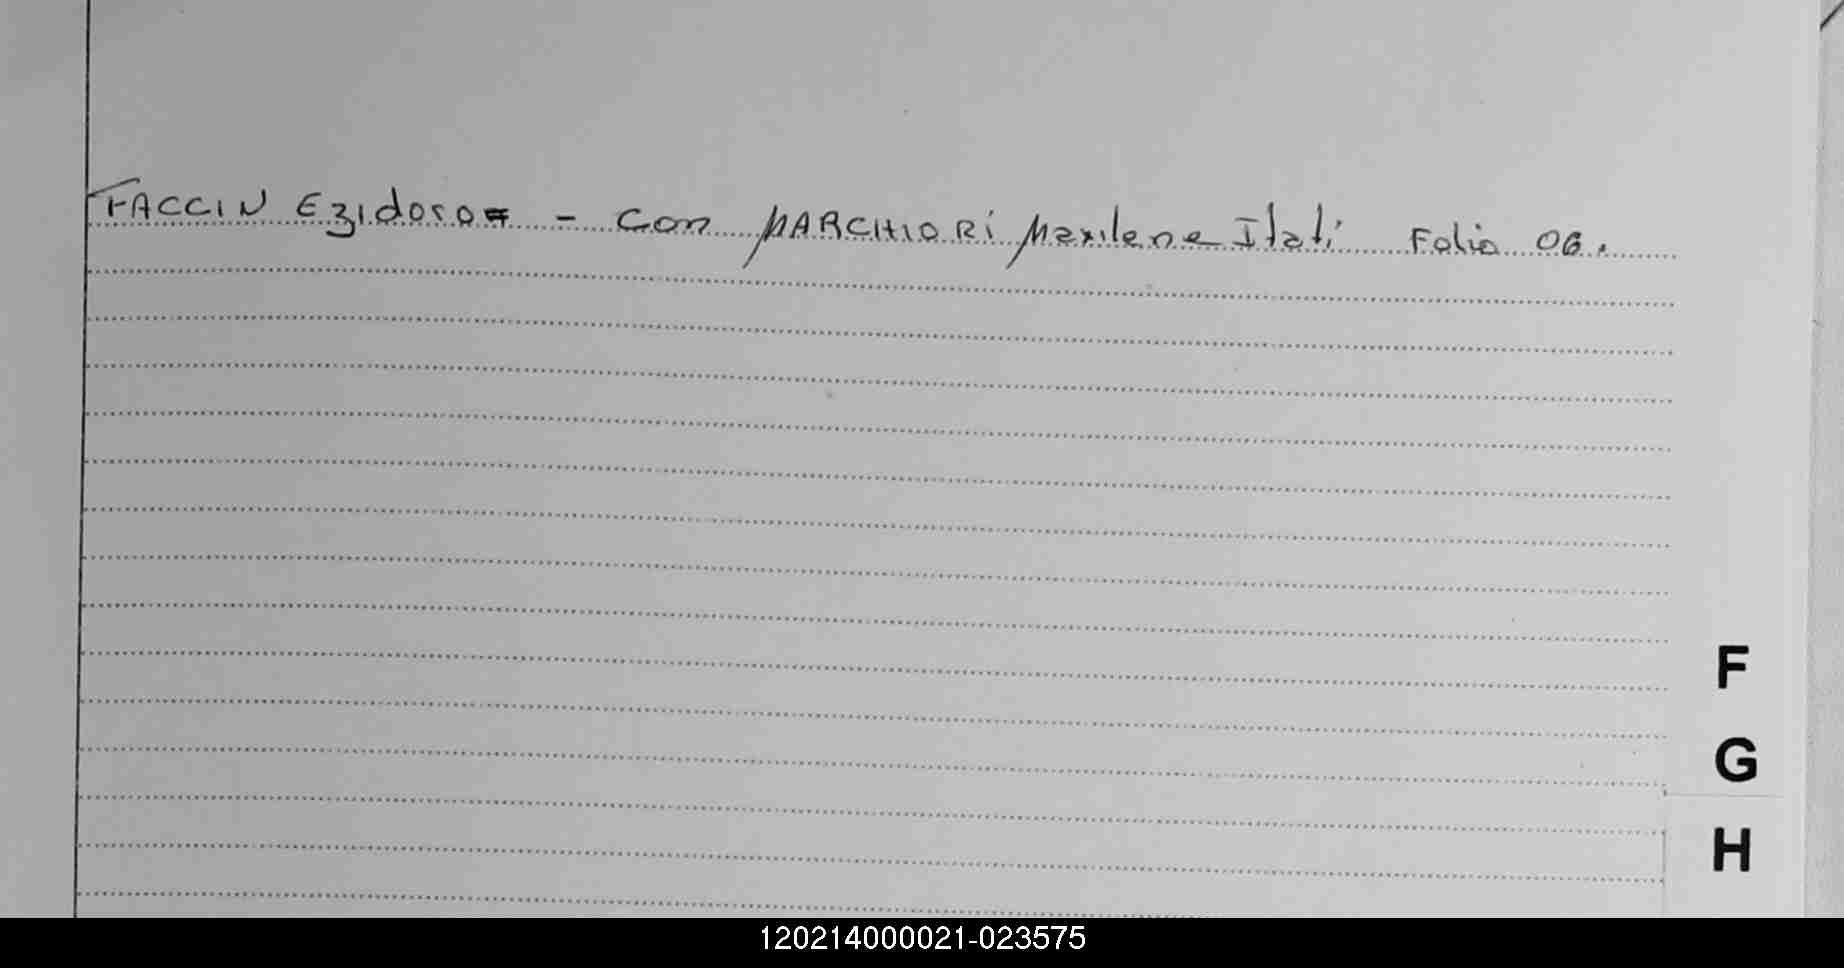 FACCIN Ezidoro - con MARCHIORI Marilene Itatí Folio 06.
F
G
H
120214000021-023575